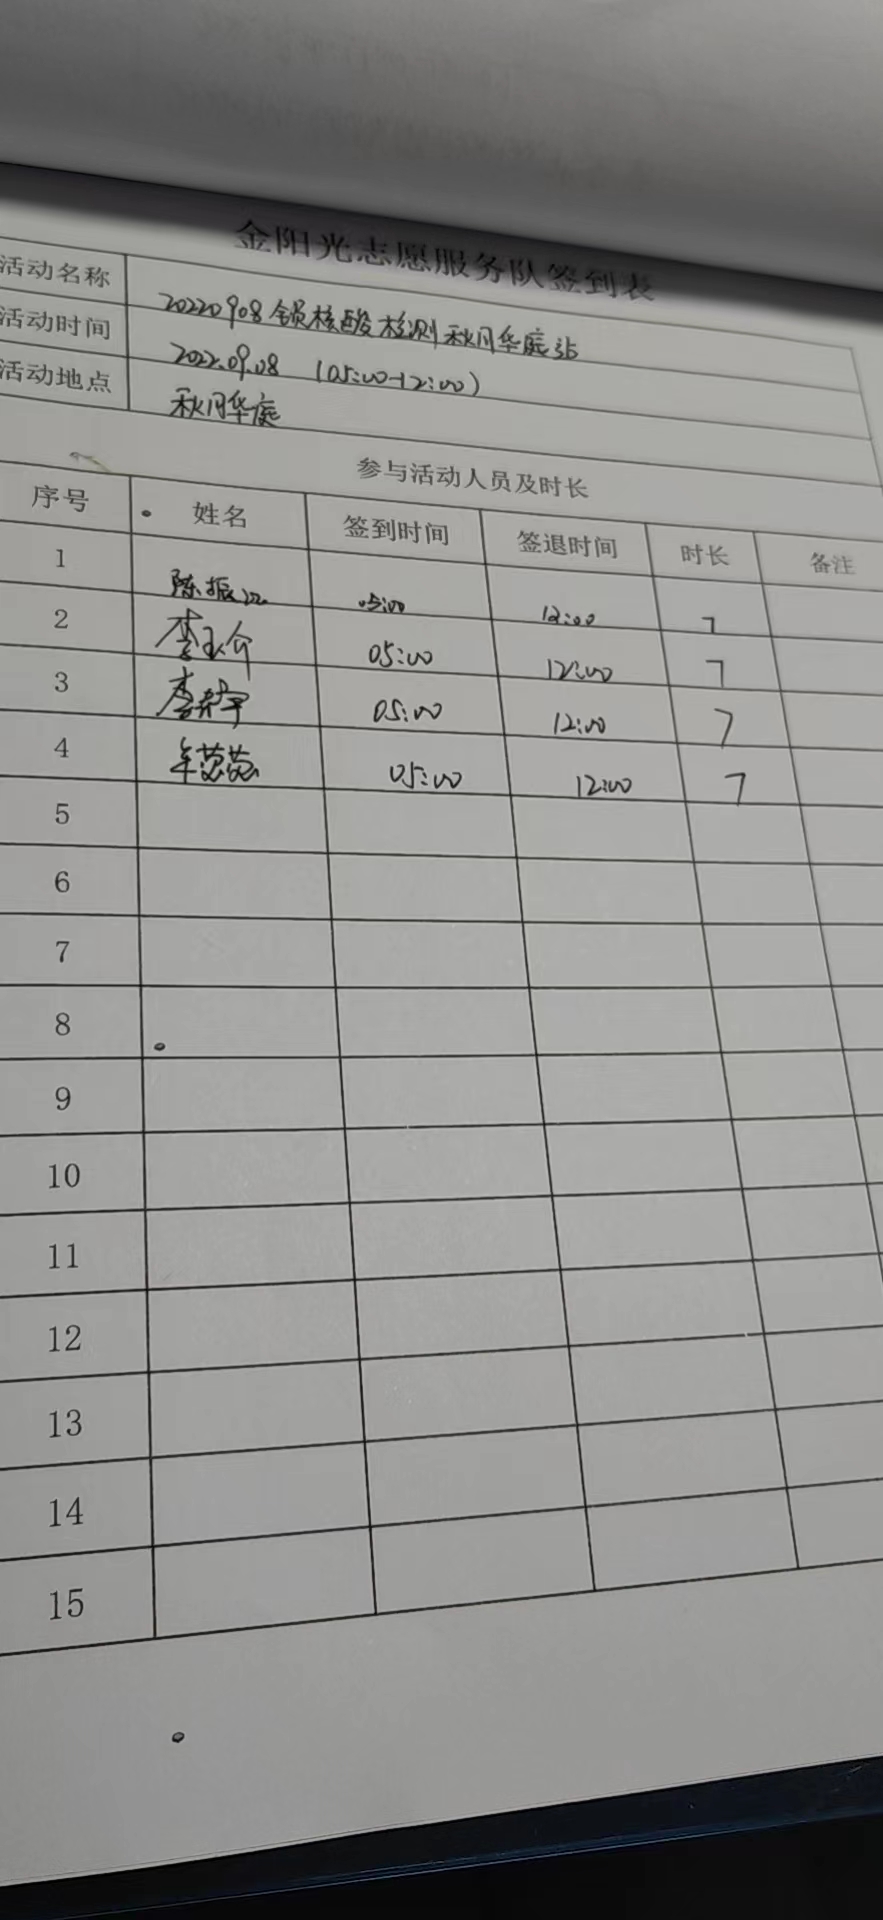 金阳光志愿服务队签到表
活动名称 20220908镇核酸检测秋月华庭站
活动时间 2022.09.08 (05:00-12:00)
活动地点 秋月华庭
参与活动人员及时长
序号 姓名 签到时间 签退时间 时长 备注
1 陈振 05:00 12:00 7
2 李玉介 05:00 12:00 7
3 李 宇 05:00 12:00 7
4 牟 05:00 12:00 7
5
6
7
8
9
10
11
12
13
14
15